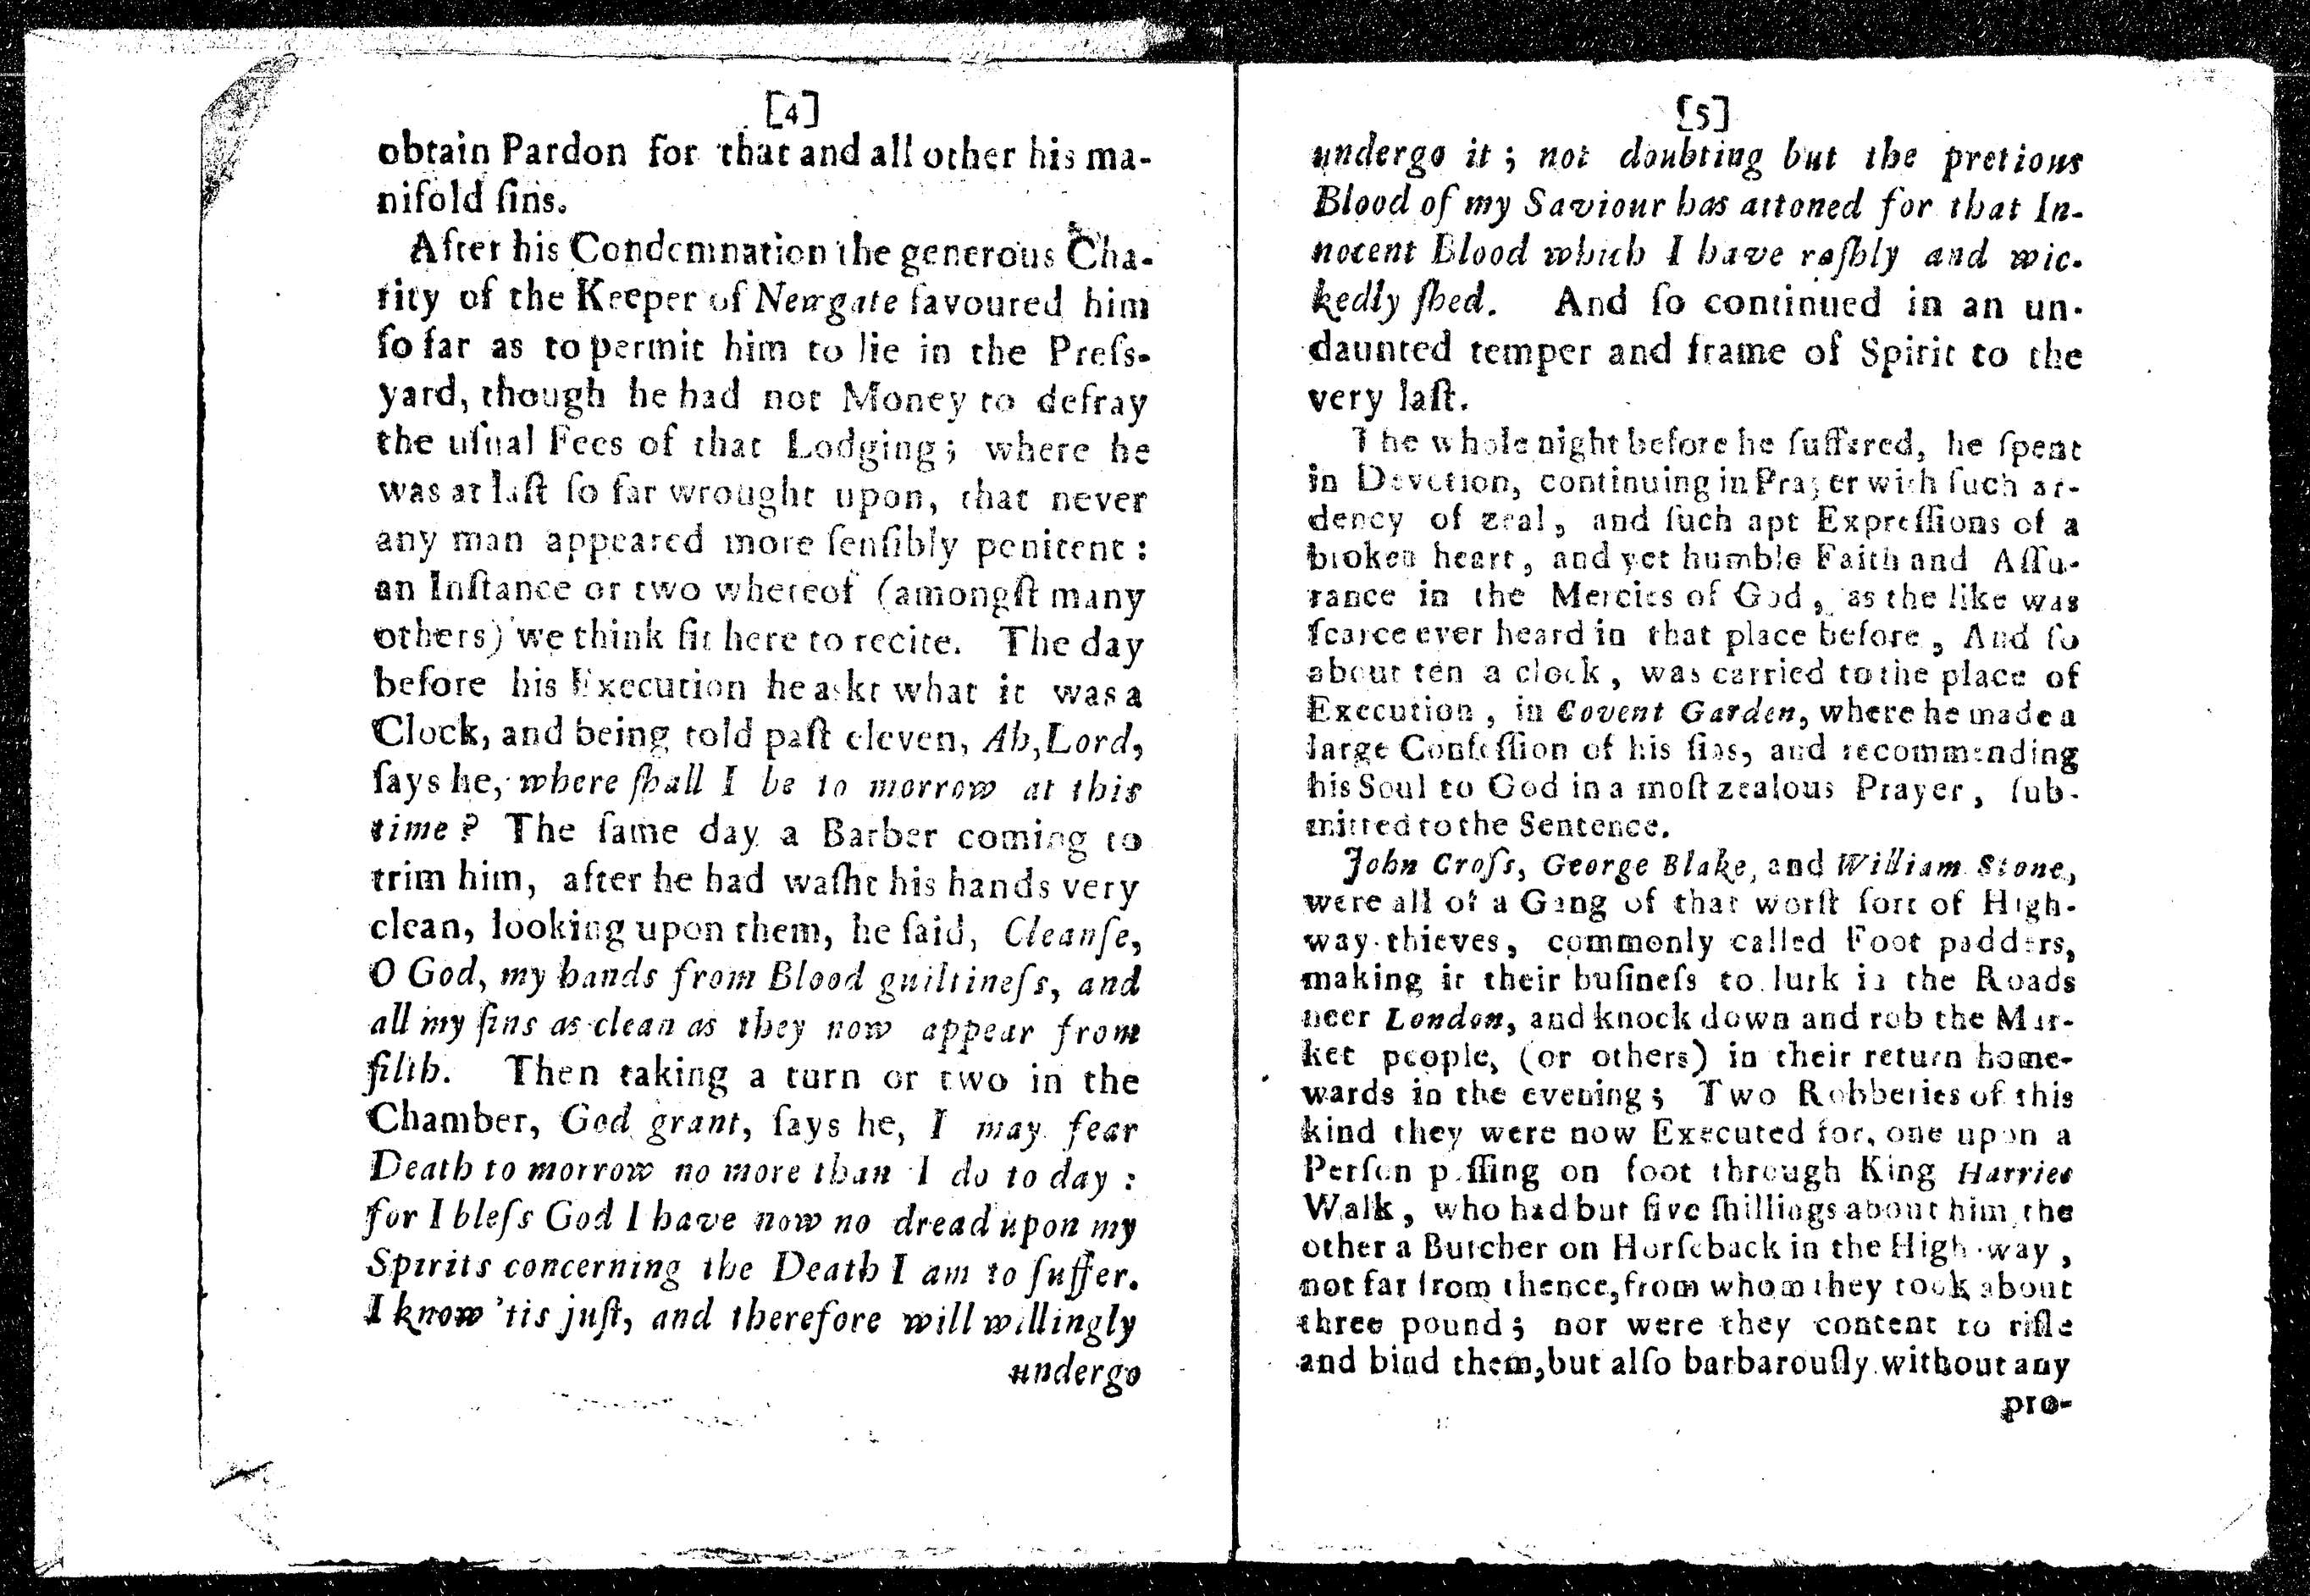 [4]
obtain Pardon for that and all other his ma-
nifold ſins.
After his Condemnation the generous Cha-
rity of the Keeper of Newgate favoured him
ſo far as to permit him to lie in the Preſs-
yard, though he had not Money to defray
the uſual Fees of that Lodging; where he
was at laſt ſo far wrought upon, that never
any man appeared more ſenſibly penitent:
an Inſtance or two whereof (amongſt many
others) we think fit here to recite. The day
before his Execution he askt what it was a
Clock, and being told paſt eleven, Ah, Lord,
ſays he, where ſhall I be to morrow at this
time? The ſame day a Barber coming to
trim him, after he had waſht his hands very
clean, looking upon them, he ſaid, Cleanſe,
O God, my hands from Blood guiltineſs, and
all my ſins as clean as they now appear from
filth. Then taking a turn or two in the
Chamber, God grant, ſays he, I may fear
Death to morrow no more than I do to day:
for I bleſs God I have now no dread upon my
Spirits concerning the Death I am to ſuffer.
I know 'tis juſt, and therefore will willingly
undergo
[5]
undergo it; not doubting but the pretious
Blood of my Saviour has attoned for that In-
nocent Blood which I have raſhly and wic-
kedly ſhed. And ſo continued in an un-
daunted temper and frame of Spirit to the
very laſt.
The whole night before he ſuffered, he ſpent
in Devotion, continuing in Prayer with ſuch ar-
dency of zeal, and ſuch apt Expreſſions of a
broken heart, and yet humble Faith and Aſſu-
rance in the Mercies of God, as the like was
ſcarce ever heard in that place before, And ſo
about ten a clock, was carried to the place of
Execution, in Covent Garden, where he made a
large Confeſſion of his ſins, and recommending
his Soul to God in a moſt zealous Prayer, ſub-
mitted to the Sentence.
John Croſs, George Blake, and William Stone,
were all of a Gang of that worſt ſort of High-
way-thieves, commonly called Foot padders,
making it their buſineſs to lurk in the Roads
neer London, and knock down and rob the Mar-
ket people, (or others) in their return home-
wards in the evening; Two Robberies of this
kind they were now Executed for, one upon a
Perſon paſſing on foot through King Harries
Walk, who had but five ſhillings about him, the
other a Butcher on Horſeback in the High-way,
not far from thence, from whom they took about
three pound; nor were they content to rifle
and bind them, but alſo barbarouſly without any
pro-